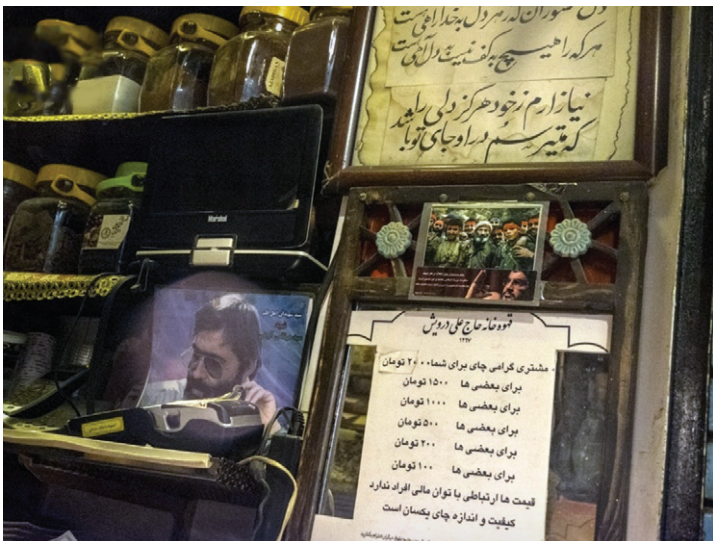 هر که را هیچ به کف نیست به دل آهی هست
نیازارم ز خود هرگز دلی را
که میترسم در او جای تو باشد
Marshal
قهوه خانه حاج علی درویش
۱۳۹۷
مشتری گرامی چای برای شما ۲۰۰۰ تومان
برای بعضی ها ۱۵۰۰ تومان
برای بعضی ها ۱۰۰۰ تومان
برای بعضی ها ۵۰۰ تومان
برای بعضی ها ۲۰۰ تومان
برای بعضی ها ۱۰۰ تومان
قیمت ها ارتباطی با توان مالی افراد ندارد
کیفیت و اندازه چای یکسان است